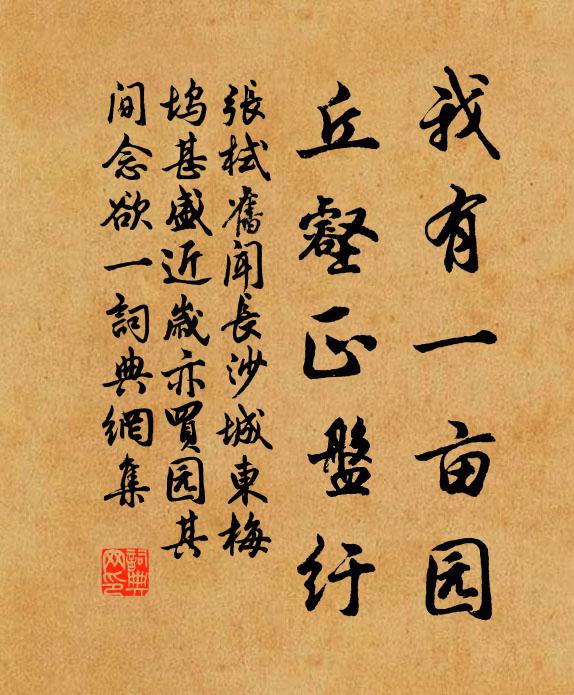 我有一亩园
丘壑正盤紆
張栻舊聞長沙城東梅
塢甚盛近歲亦買园其
间念欲一詞典網集
詞典網印